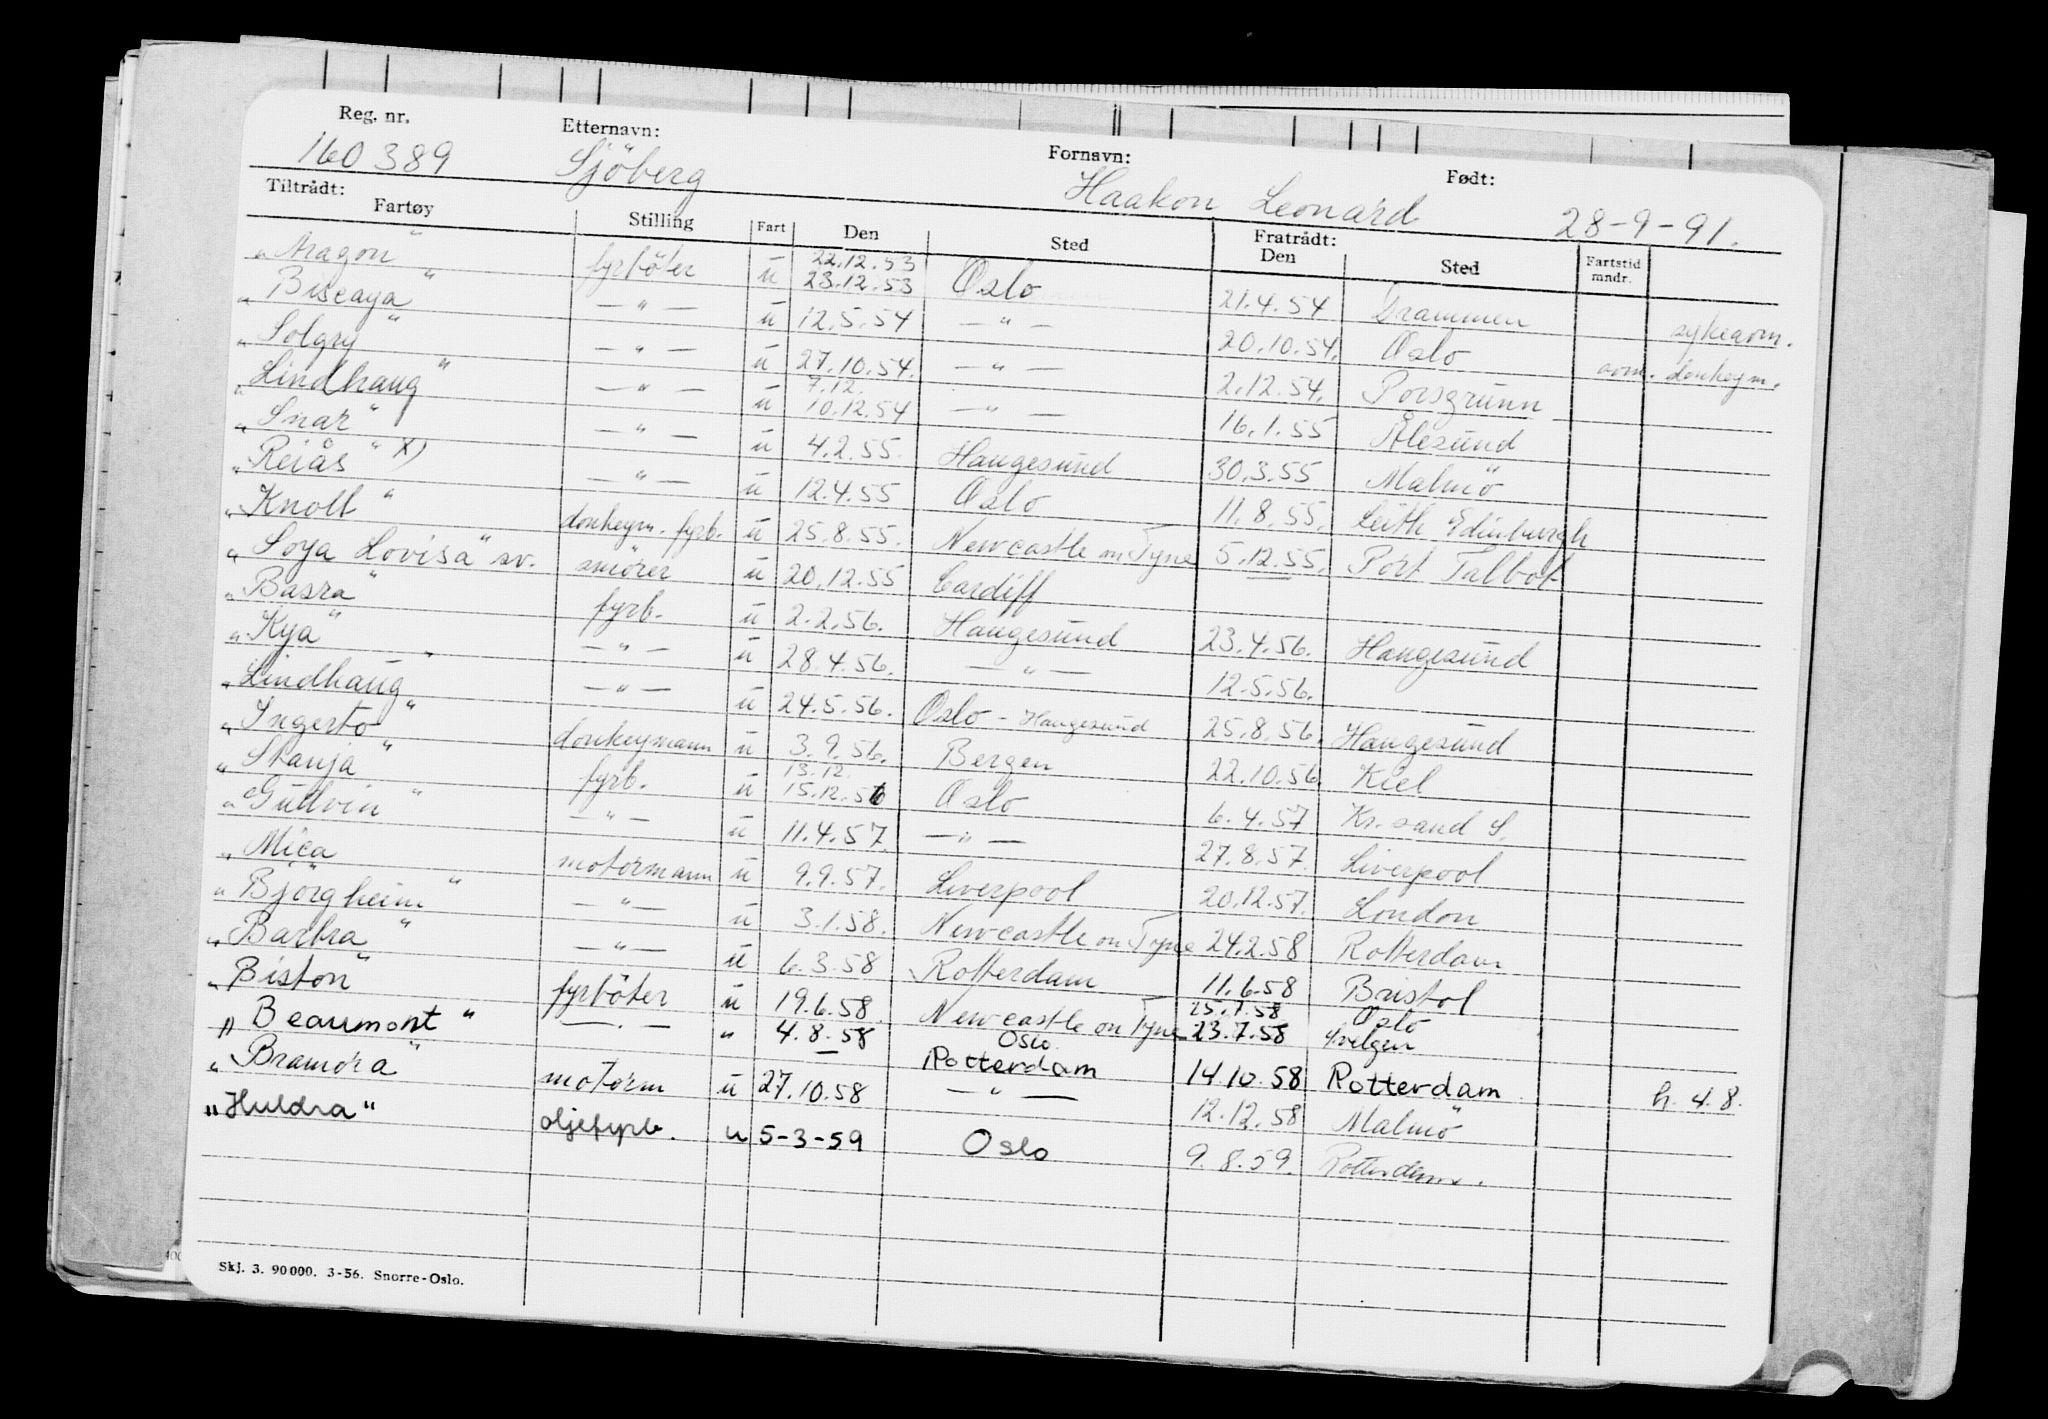 Reg. nr. Etternavn: Fornavn: Født:
160389 Sjöberg Haakon Leonard 28-9-91.
Tiltrådt: Fratrådt:
Fartøy Stilling Fart Den Sted Den Sted Fartstid mndr.
„Aragon" fyrböter u 22.12.53 23.12.53 Oslo 21.4.54 Drammen sykeavm.
„Biscaya" —"— u 12.5.54 —"— 20.10.54. Oslo avm. donkeym.
„Solgry" —"— u 27.10.54. —"— 2.12.54. Porsgrunn
„Lindhaug" —"— u 7.12. 10.12.54 —"— 16.1.55 Ålesund
„Snar" —"— u 4.2.55. Haugesund 30.3.55 Malmö
„Reiås" x) —"— u 12.4.55 Oslo 11.8.55. Leith Edinburgh
„Knoll" donkeym. fyrb. u 25.8.55. Newcastle on Tyne 5.12.55. Port Talbot
„Soya Lovisa" sv. smörer u 20.12.55 Cardiff
„Basra" fyrb. u 2.2.56. Haugesund 23.4.56. Haugesund
„Kya" —"— u 28.4.56. —"— 12.5.56.
„Lindhaug" —"— u 24.5.56. Oslo - Haugesund 25.8.56. Haugesund
„Ingerto" donkeymann u 3.9.56. Bergen 22.10.56. Kiel
„Skauja" fyrb. u 13.12. 15.12.56 Oslo 6.4.57 Kr.sand S.
„Gudvin" —"— u 11.4.57. —"— 27.8.57. Liverpool
„Mica" motormann u 9.9.57. Liverpool 20.12.57. London
„Björgheim" —"— u 3.1.58. Newcastle on Tyne 24.2.58 Rotterdam
„Barbra" —"— u 6.3.58 Rotterdam 11.6.58 Bristol
„Biston" fyrböter u 19.6.58. Newcastle on Tyne 25.7.58 23.7.58 Oslo
„Beaumont" —"— " 4.8.58 Oslo Rotterdam 14.10.58 Rotterdam h. 4.8.
„Bramora" motorm u 27.10.58 —"— 12.12.58 Malmö
„Huldra" oljefyrb. u 5-3-59 Oslo 9.8.59. Rotterdam.
Skj. 3. 90000. 3-56. Snorre-Oslo.